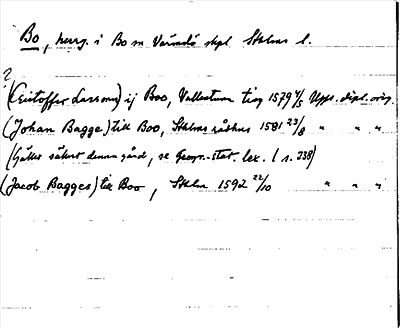 Bo, herrg. i Bo sn Värmdö skpl. Sthlms l.
?
(Cristoffer Larsson) ij Boo, Vallentuna ting 1579 4/5 Upps. dipl. orig.
(Johan Bagge) till Boo, Sthlms rådhus 1581 23/8 " " "
(Gäller säkert denna gård, se Geogr.-stat. lex. 1 s. 238)
(Jacob Bagges) till Boo, Sthlm 1592 22/10 " " "